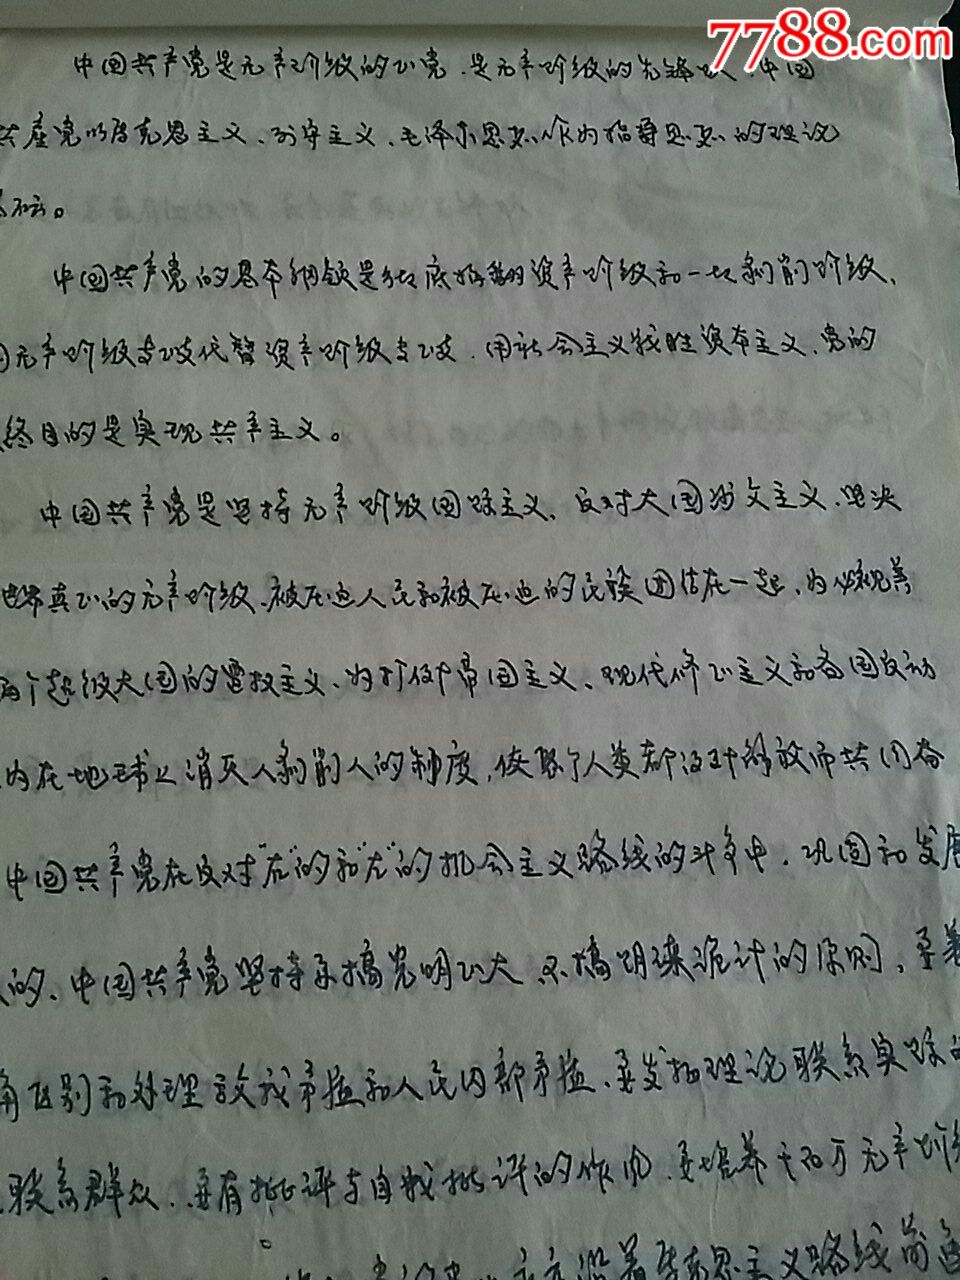 7788.com
中国共产党是无产阶级的政党，是无产阶级的先锋队，中国
共产党以马克思主义、列宁主义、毛泽东思想作为指导思想的理论
基础。
中国共产党的基本纲领是彻底推翻资产阶级和一切剥削阶级，
用无产阶级专政代替资产阶级专政，用社会主义战胜资本主义，党的
终目的是实现共产主义。
中国共产党是坚持无产阶级国际主义，反对大国沙文主义，坚决
世界真正的无产阶级、被压迫人民和被压迫的民族团结在一起，为
两个超级大国的霸权主义，为打倒帝国主义、现代修正主义和各国反动
为在地球上消灭人剥削人的制度，使整个人类都得到解放而共同奋
中国共产党在反对"右"的和"左"的机会主义路线的斗争中，巩固和发展
的，中国共产党坚持要搞光明正大，不搞阴谋诡计的原则，要善
确区别和处理敌我矛盾和人民内部矛盾，要发扬理论联系实际的
联系群众，要有批评与自我批评的作风，要培养千百万无产阶级
沿着马克思主义路线前